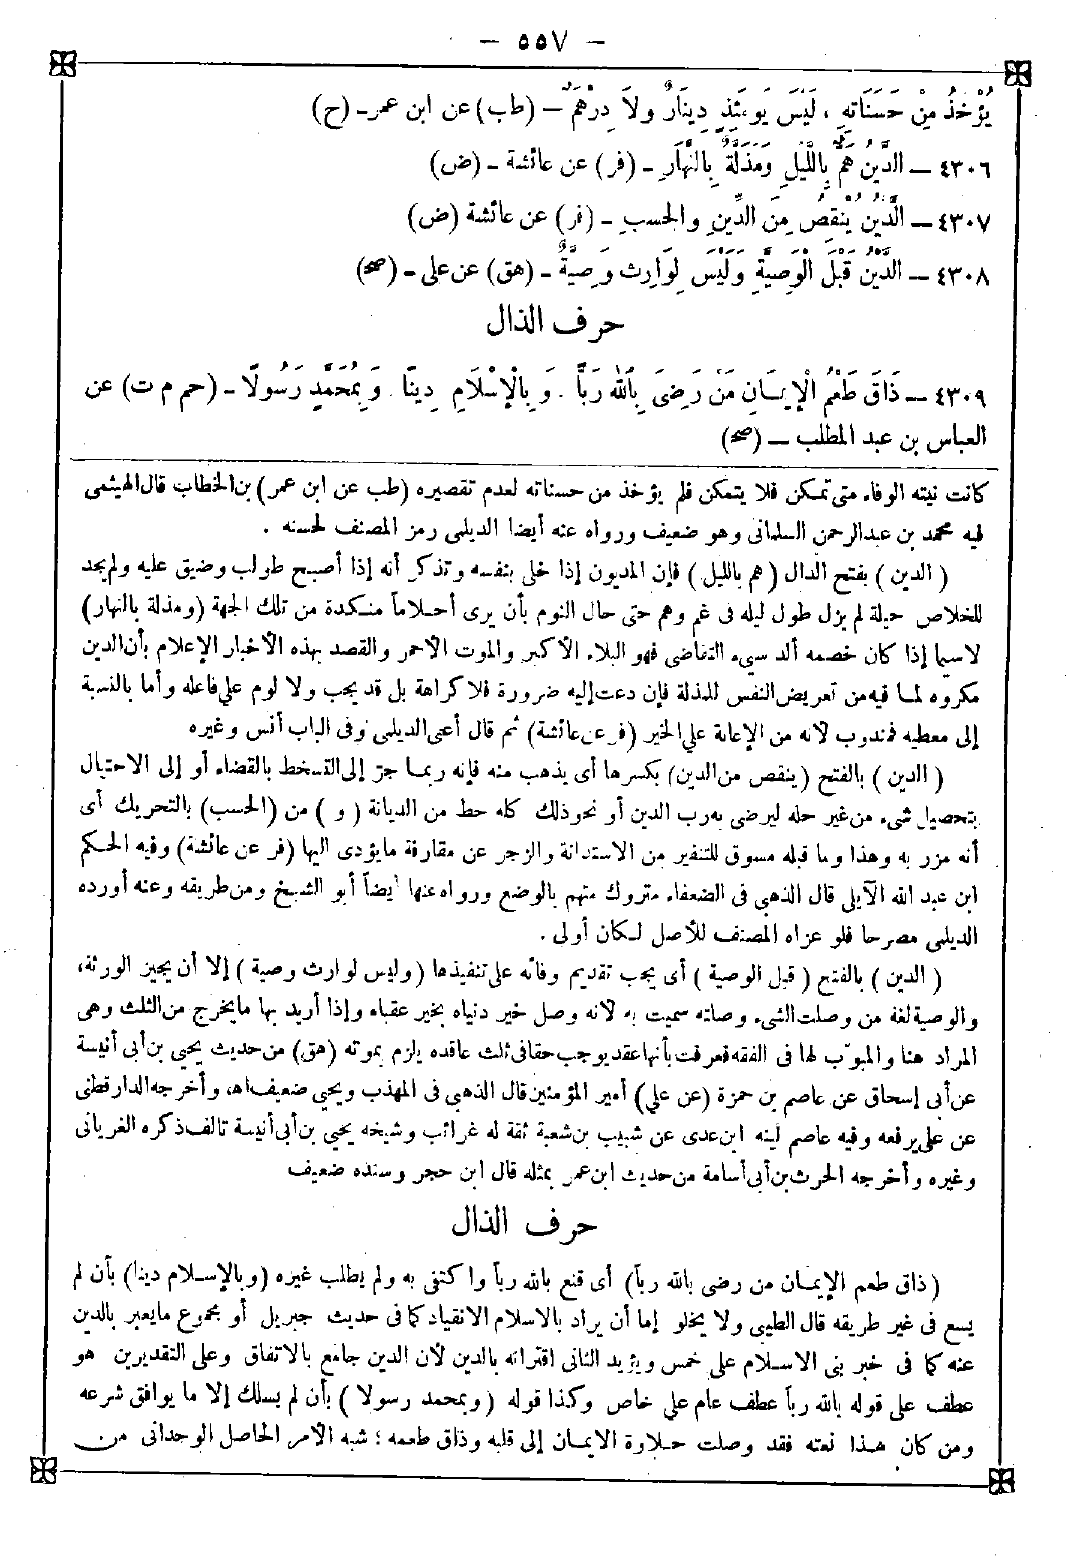 — ٥٥٧ —
يُؤْخَذُ مِنْ حَسَنَاتِهِ ، لَيْسَ يَوْمَئِذٍ دِينَارٌ وَلَا دِرْهَمٌ — (طب) عن ابن عمر - (ح)
٤٣٠٦ — الدَّيْنُ هَمٌّ بِاللَّيْلِ وَمَذَلَّةٌ بِالنَّهَارِ - (فر) عن عائشة - (ض)
٤٣٠٧ — الدَّيْنُ يُنْقِصُ مِنَ الدِّينِ والحسب - (فر) عن عائشة (ض)
٤٣٠٨ — الدَّيْنُ قَبْلَ الْوَصِيَّةِ وَلَيْسَ لِوَارِثٍ وَصِيَّةٌ - (هق) عن على - (صح)
حرف الذال
٤٣٠٩ — ذَاقَ طَعْمَ الْإِيمَانِ مَنْ رَضِىَ بِاللهِ رَبًّا . وَبِالْإِسْلَامِ دِينًا . وَبِمُحَمَّدٍ رَسُولًا - (حم م ت) عن
العباس بن عبد المطلب — (صح)
كانت نيته الوفاء متى تمكن فلا يتمكن فلم يؤخذ من حسناته لعدم تقصيره (طب عن ابن عمر) بن الخطاب قال الهيثمى
فيه محمد بن عبدالرحمن السلمانى وهو ضعيف ورواه عنه أيضا الديلمى رمز المصنف لحسنه .
( الدين ) بفتح الدال ( هم بالليل ) فإن المديون إذا خلى بنفسه وتذكر أنه إذا أصبح طولب وضيق عليه ولم يجد
للخلاص حيلة لم يزل طول ليله فى غم وهم حتى حال النوم بأن يرى أحلاماً منكدة من تلك الجهة (ومذلة بالنهار)
لاسيما إذا كان خصمه ألد سيء التقاضى فهو البلاء الأكبر والموت الاحمر والقصد بهذه الأخبار الإعلام بأن الدين
مكروه لما فيه من تعريض النفس للمذلة فإن دعت إليه ضرورة فلا كراهة بل قد يجب ولا لوم على فاعله وأما بالنسبة
إلى معطيه فمندوب لأنه من الإعانة على الخير (فر عن عائشة) ثم قال أعنى الديلمى وفى الباب أنس وغيره
( الدين ) بالفتح ( ينقص من الدين) بكسرها أى يذهب منه فإنه ربما جر إلى التسخط بالقضاء أو إلى الاحتيال
بتحصيل شىء من غير حله ليرضى به رب الدين أو نحو ذلك كله حط من الديانة ( و ) من (الحسب) بالتحريك أى
أنه مزر به وهذا وما قبله مسوق للتنفير من الاستدانة والزجر عن مقارفة ما يؤدى اليها (فر عن عائشة) وفيه الحكم
ابن عبد الله الآيلى قال الذهبى فى الضعفاء متروك متهم بالوضع ورواه عنها أيضاً أبو الشيخ ومن طريقه وعنه أورده
الديلمى مصرحا فلو عزاه المصنف للأصل لكان أولى .
( الدين ) بالفتح ( قبل الوصية ) أى يجب تقديم وفائه على تنفيذها (وليس لوارث وصية ) إلا أن يجيز الورثة،
والوصية لغة من وصلت الشىء وصلته سميت به لأنه وصل خير دنياه بخير عقباه وإذا أريد بها ما يخرج من الثلث وهى
المراد هنا والمبوّب لها فى الفقه فعرفت بأنها عقد يوجب حقا فى ثلث عاقده يلزم بموته (هق) من حديث يحيى بن أبى أنيسة
عن أبى إسحاق عن عاصم بن حمزة (عن على) أمير المؤمنين قال الذهبى فى المهذب ويحيى ضعيف اه، وأخرجه الدارقطنى
عن على يرفعه وفيه عاصم لينه ابن عدى عن شبيب بن شعبة ثقة له غرائب وشيخه يحيى بن أبى أنيسة تالف ذكره الغريانى
وغيره وأخرجه الحرث بن أبى أسامة من حديث ابن عمر بمثله قال ابن حجر وسنده ضعيف
حرف الذال
(ذاق طعم الإيمان من رضى بالله رباً) أى قنع بالله رباً واكتفى به ولم يطلب غيره (وبالإسلام دينا) بأن لم
يسع فى غير طريقه قال الطيبى ولا يخلو إما أن يراد بالاسلام الانقياد كما فى حديث جبريل أو مجموع ما يعبر بالدين
عنه كما فى خبر بنى الاسلام على خمس ويؤيد الثانى اقترانه بالدين لأن الدين جامع بالاتفاق وعلى التقديرين هو
عطف على قوله بالله رباً عطف عام على خاص وكذا قوله ( وبمحمد رسولا ) بأن لم يسلك إلا ما يوافق شرعه
ومن كان هذا نعته فقد وصلت حلاوة الايمان إلى قلبه وذاق طعمه ؛ شبه الأمر الحاصل الوجدانى من